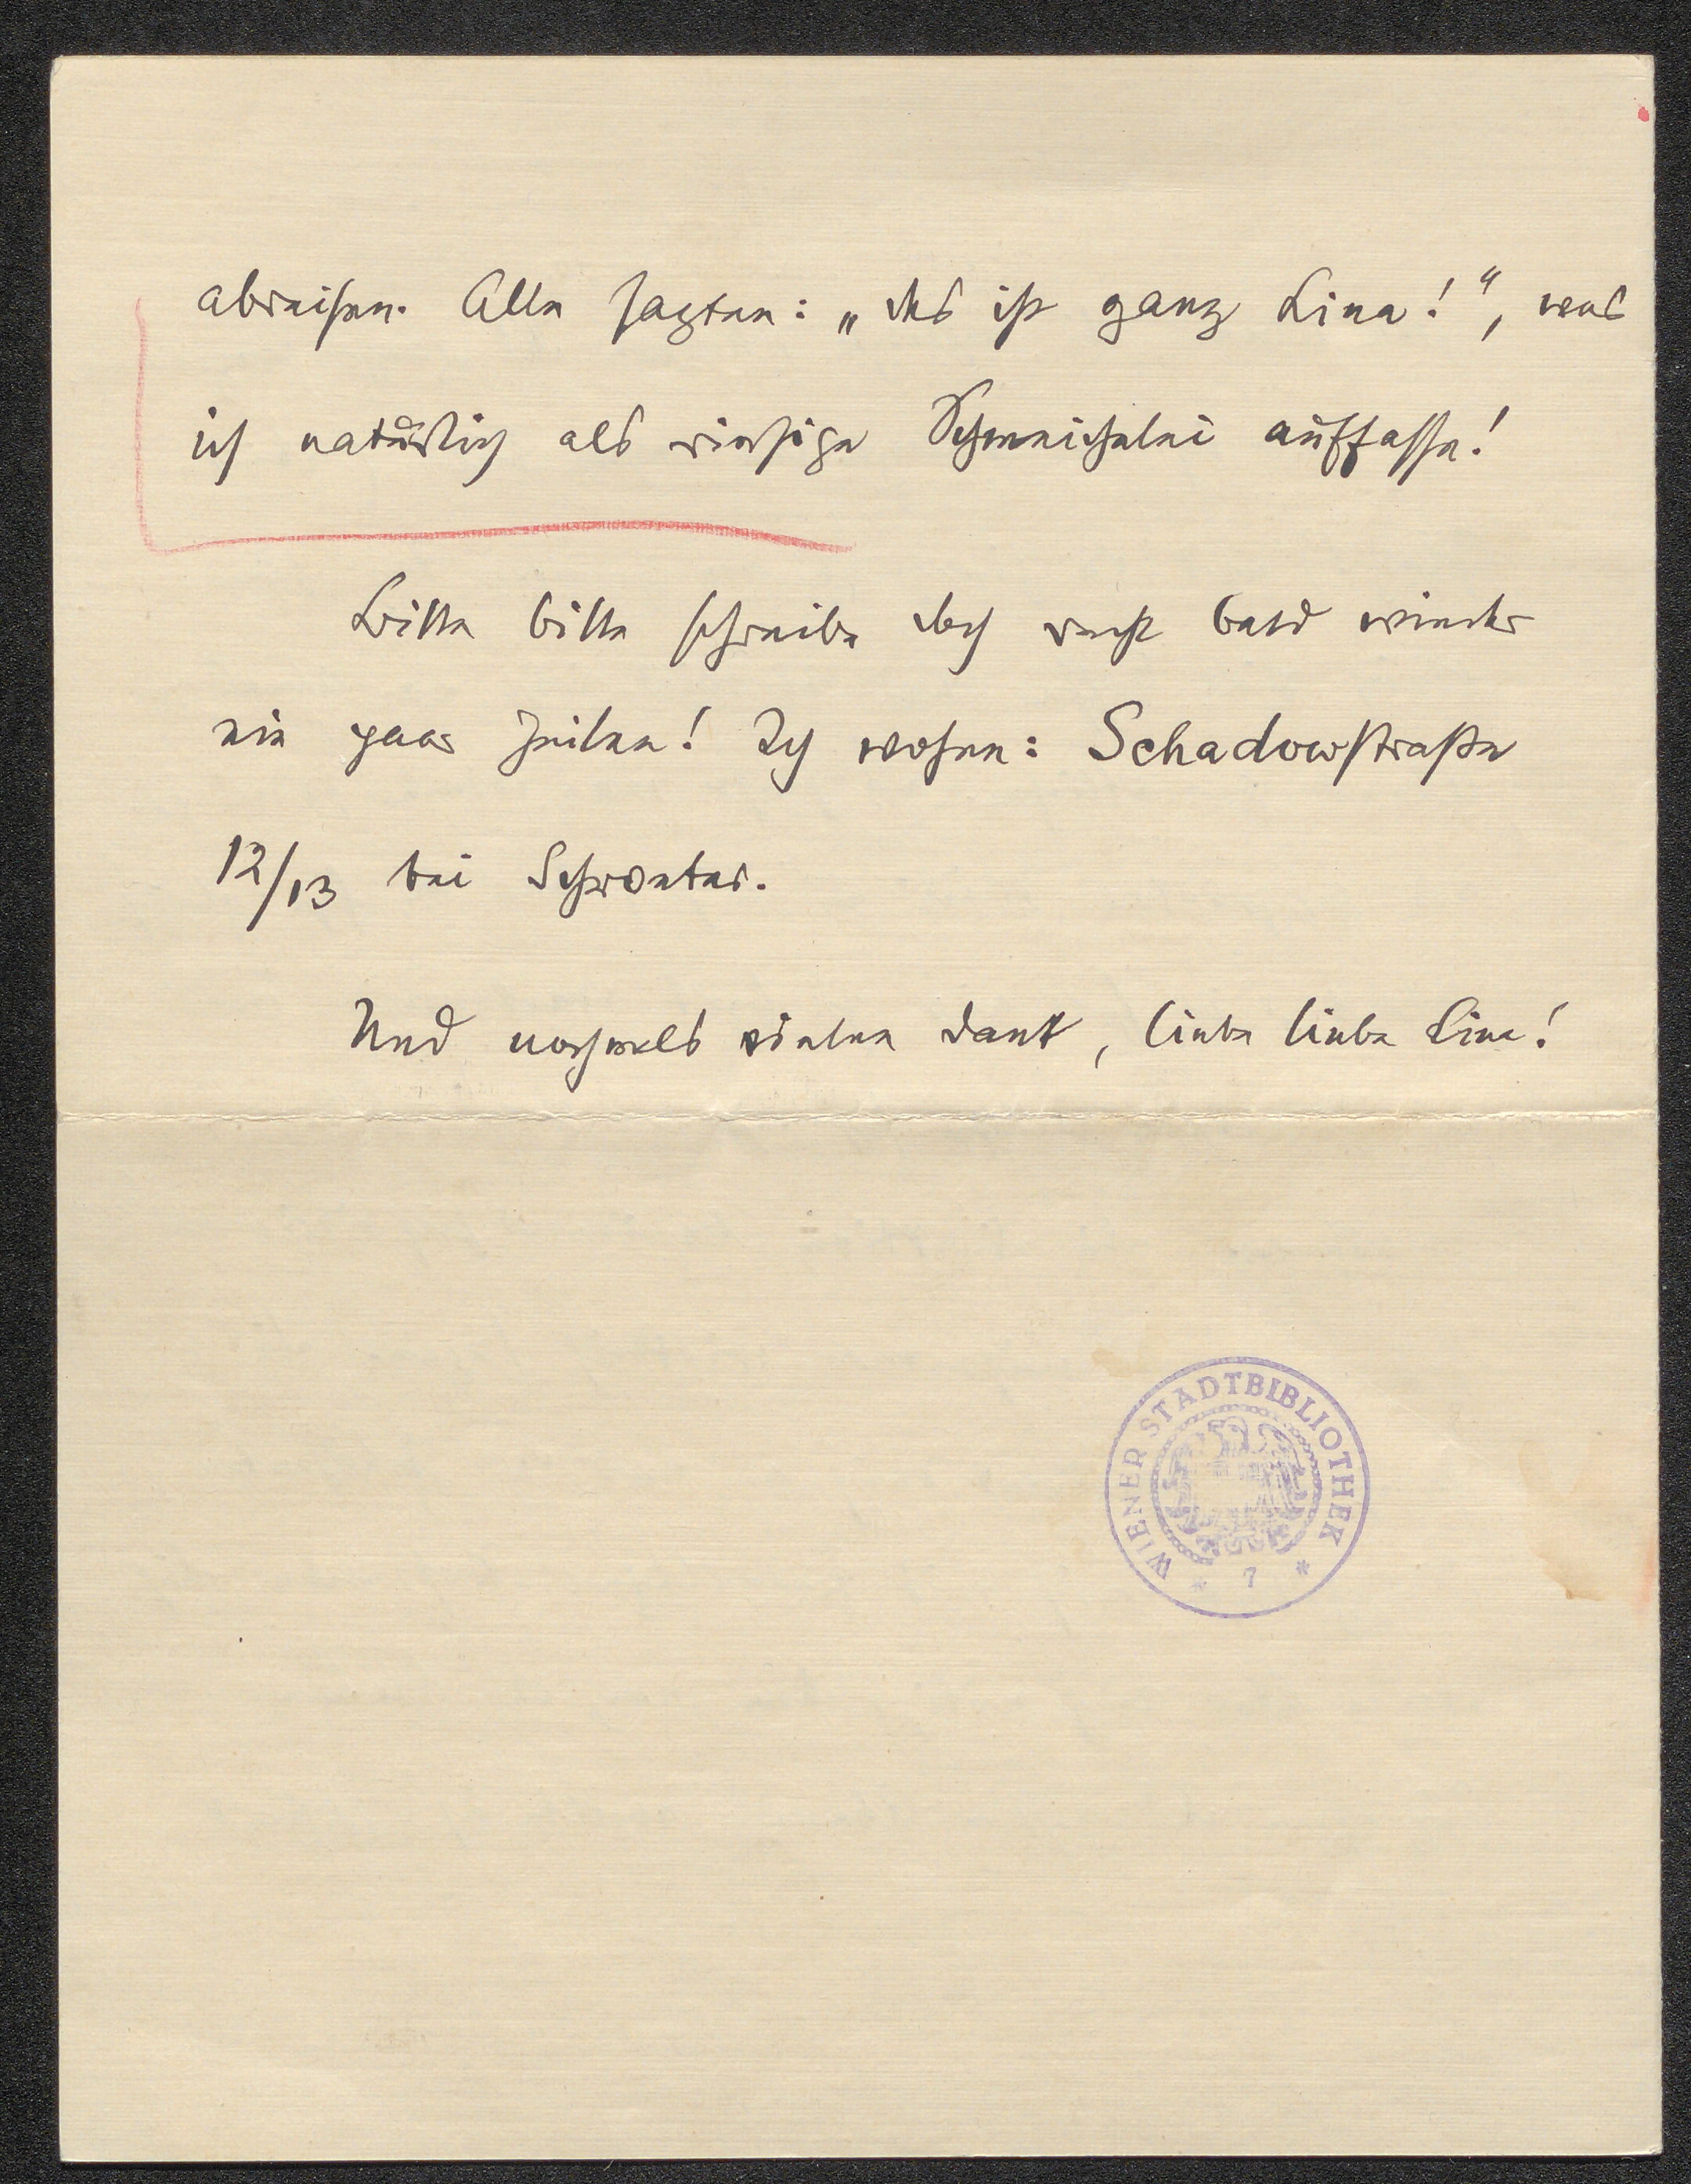 abreisen. Alle sagten: „das ist ganz Lina!“, was
ich natürlich als riesige Schmeichelei auffasse!
Bitte bitte schreibe doch recht bald wieder
ein paar Zeilen! Ich wohne: Schadowstraße
12/13 bei Schroeter.
Und nochmals vielen Dank, liebe liebe Lina!
WIENER STADTBIBLIOTHEK
* 7 *